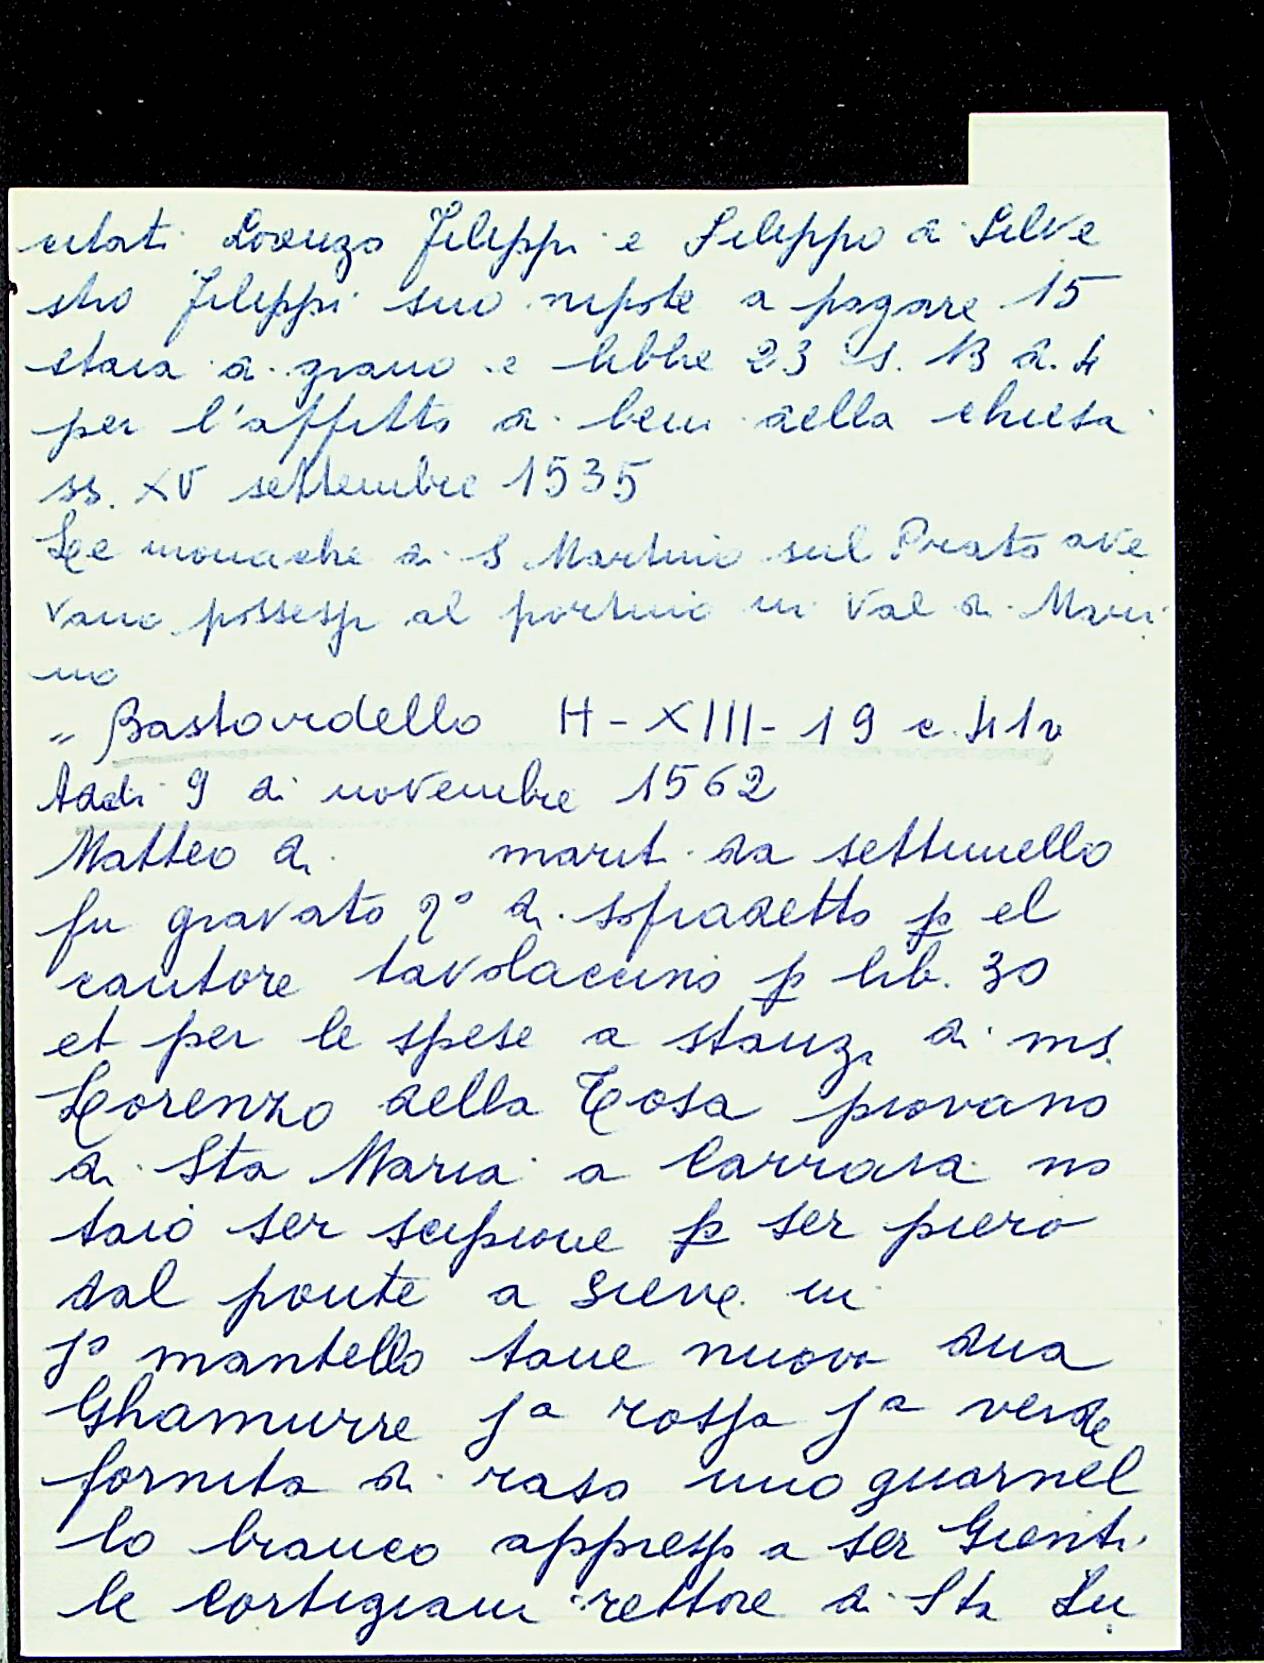 citati Lorenzo Fileppi e Fileppo di Silve
stro Fileppi suo nipote a pagare 15
staia di grano e libbre 23 s. 13 d. 4
per l'affitto di beni della chiesa
ss. XV settembre 1535
Le monache di S Martino sul Prato ave
vano possessi al portino in Val di Mari
no
" Bastardello H-XIII-19 c. 41v
Addi 9 di novembre 1562
Matteo di marit da settimello
fu gravato qo di sopradetto p el
cantore tavolaccino p lib. 30
et per le spese a stanzi di ms.
Lorenzo della Tosa piovano
di Sta Maria a Carraia no
taio ser scipione p ser piero
dal ponte a Sieve in
jo mantello tane nuovo dua
Ghamurre ja rossa ja verde
fornita di raso uno guarnel
lo bianco appresso a ser Gienti
le Cortigiani rettore di Sta Lu